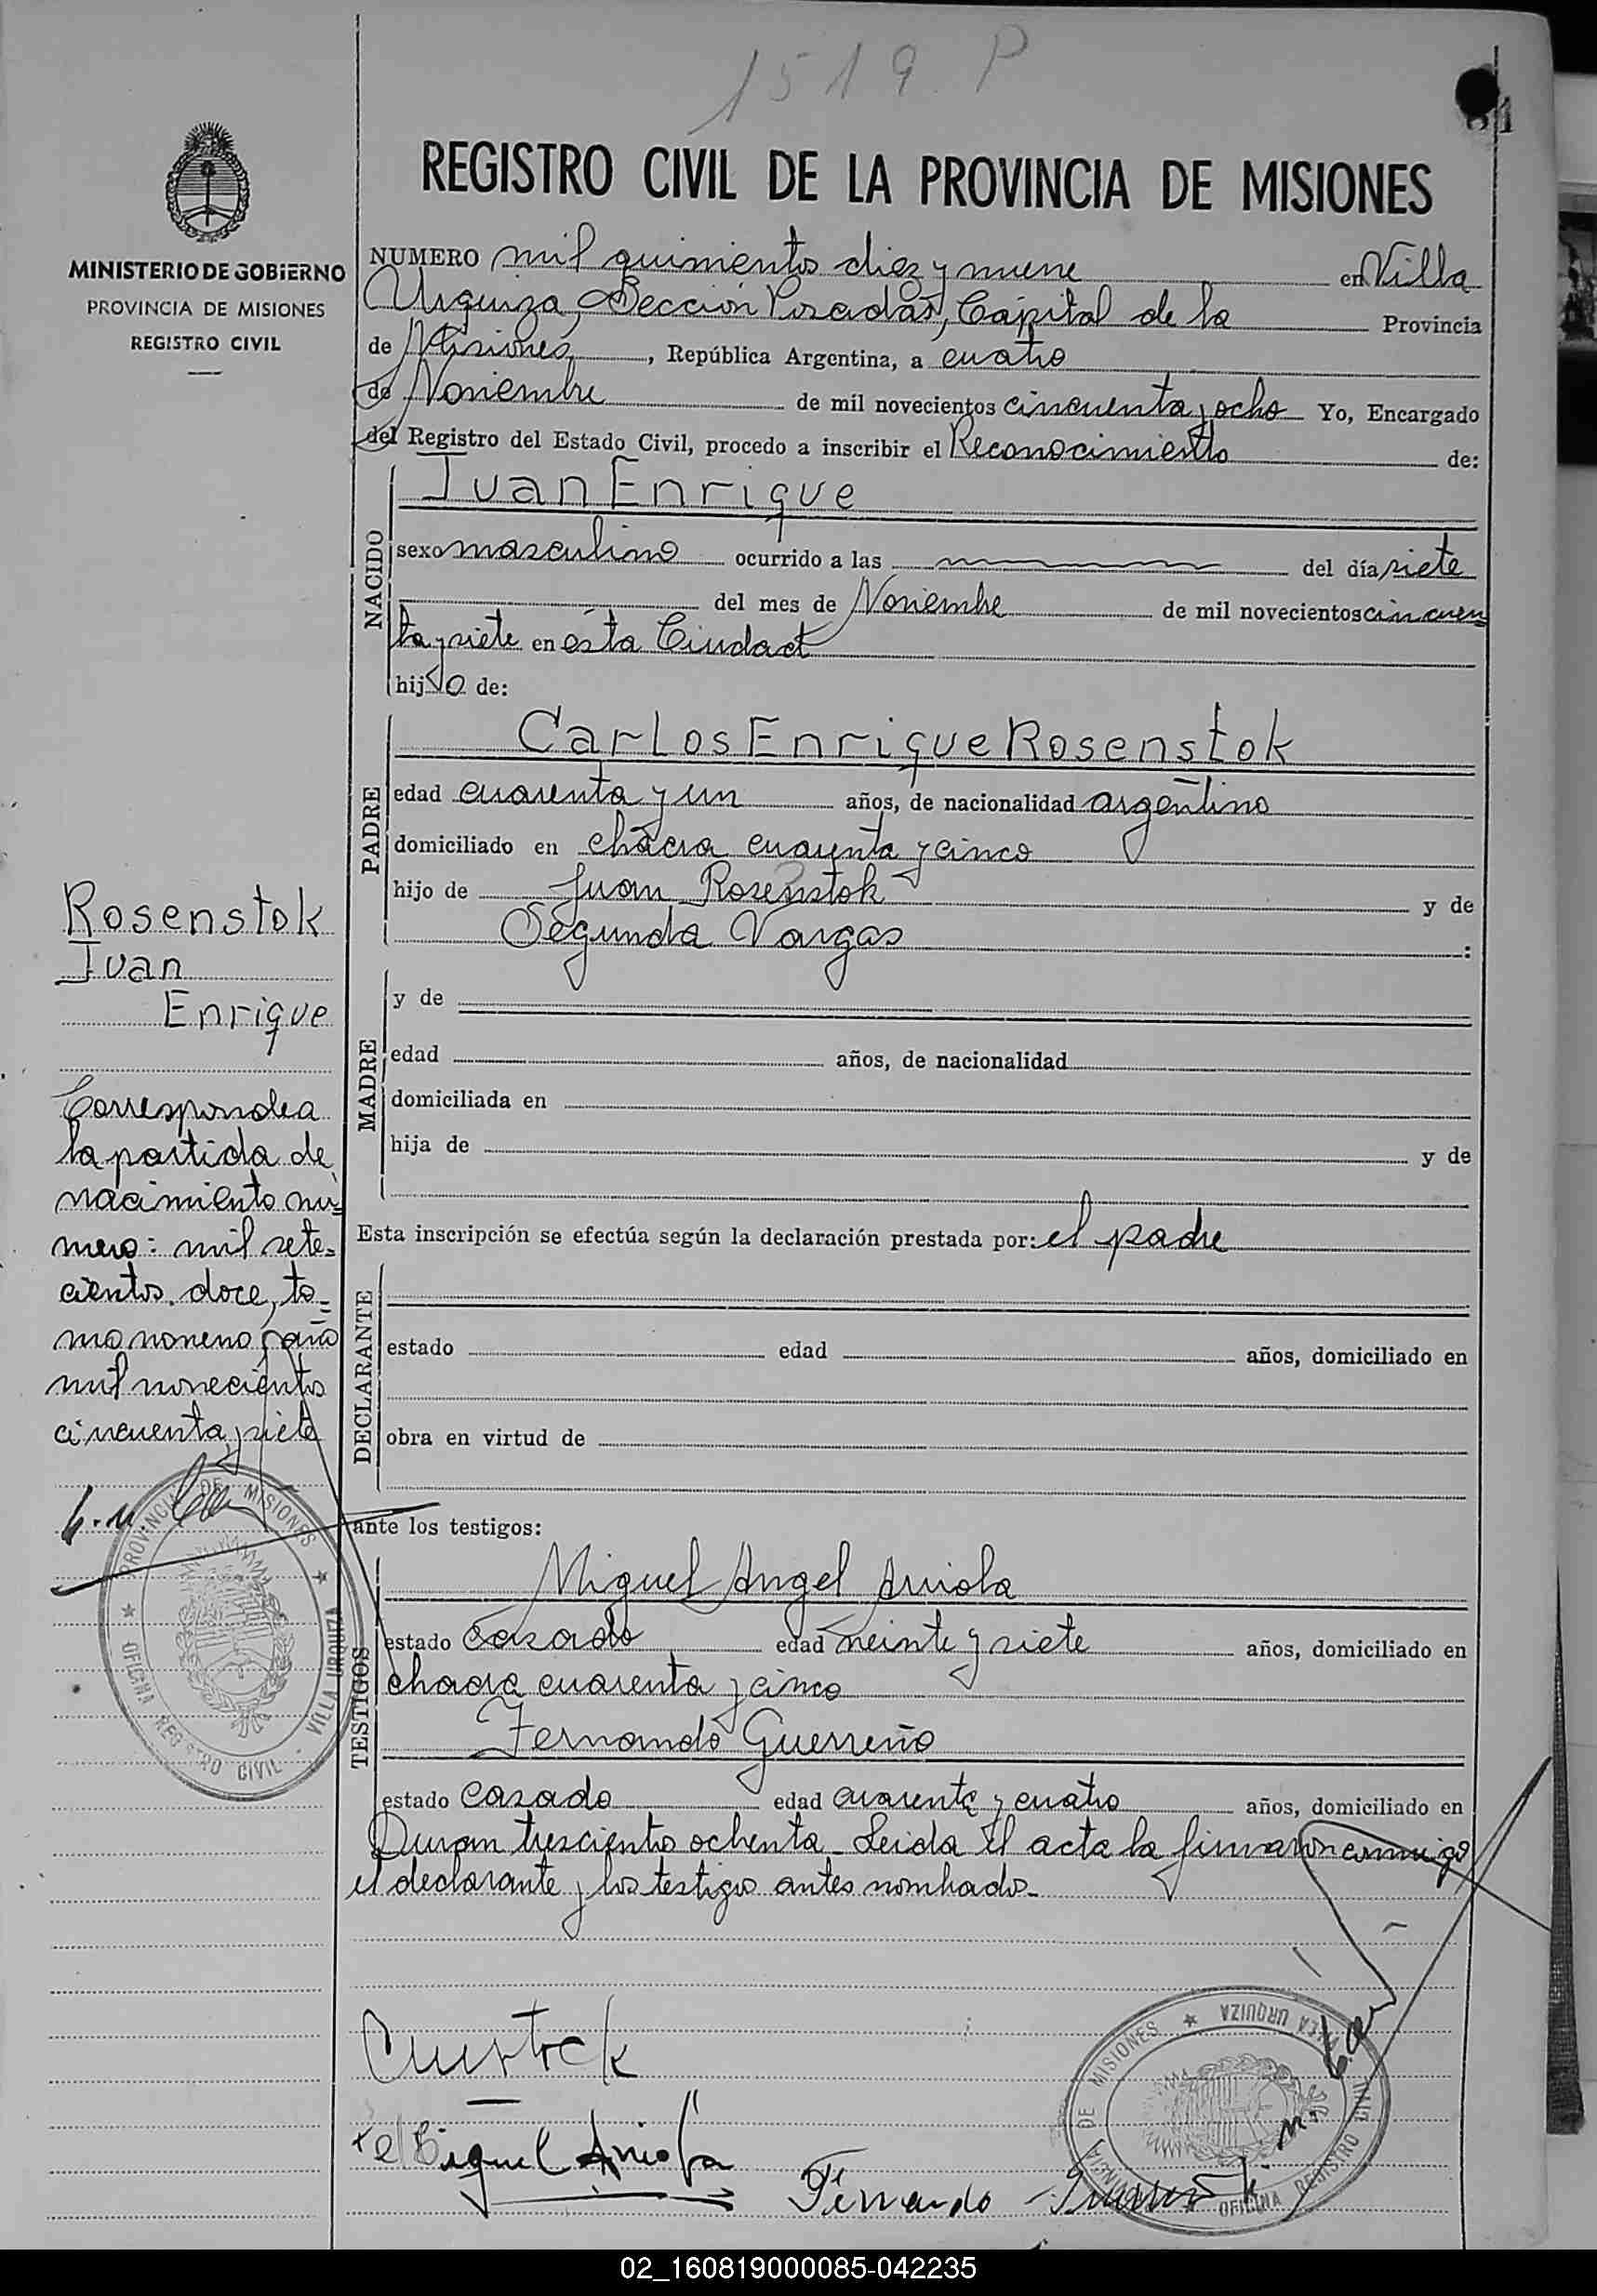 1519 P
REGISTRO CIVIL DE LA PROVINCIA DE MISIONES
MINISTERIO DE GOBIERNO
PROVINCIA DE MISIONES
REGISTRO CIVIL
NUMERO mil quinientos diez y nueve en Villa
Urquiza, Sección Posadas, Capital de la Provincia
de Misiones, República Argentina, a cuatro
de Noviembre de mil novecientos cincuenta y ocho Yo, Encargado
del Registro del Estado Civil, procedo a inscribir el Reconocimiento de:
NACIDO
Juan Enrique
sexo masculino ocurrido a las del día siete
del mes de Noviembre de mil novecientos cincuen
ta y siete en ésta Ciudad
hijo de:
PADRE
Carlos Enrique Rosenstok
edad cuarenta y un años, de nacionalidad argentino
domiciliado en chacra cuarenta y cinco
hijo de Juan Rosenstok y de
Segunda Vargas :
MADRE
y de
edad años, de nacionalidad
domiciliada en
hija de y de
Esta inscripción se efectúa según la declaración prestada por: el padre
DECLARANTE
estado edad años, domiciliado en
obra en virtud de
ante los testigos:
TESTIGOS
Miguel Angel Arriola
estado casado edad veinte y siete años, domiciliado en
chacra cuarenta y cinco
Fernando Guerreño
estado casado edad cuarenta y cuatro años, domiciliado en
tresciento ochenta. Leida el acta la firmaron conmigo
el declarante y los testigos antes nombrados.
Rosenstok
Juan
Enrique
Corresponde a
la partida de
nacimiento nú=
mero: mil sete=
cientos doce, to=
mo noveno, año
mil novecientos
cincuenta y siete
PROVINCIA DE MISIONES
OFICINA REGISTRO CIVIL - VILLA URQUIZA
Miguel Arriola
Fernando
PROVINCIA DE MISIONES
VILLA URQUIZA
OFICINA REGISTRO CIVIL
02_160819000085-042235